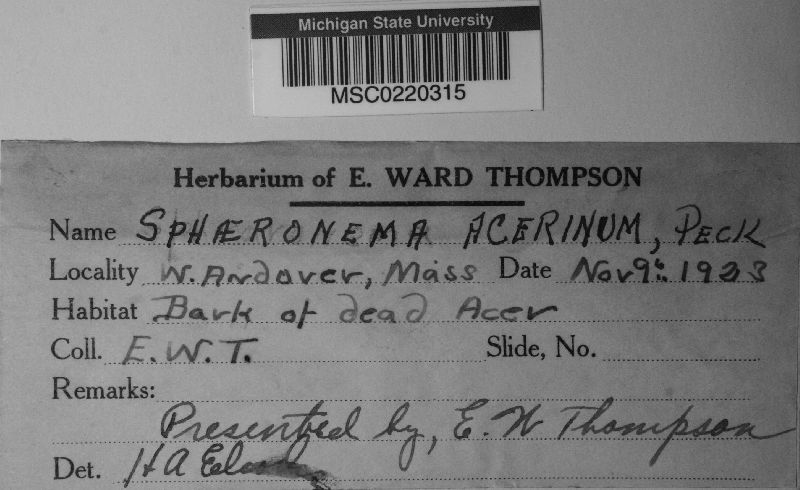 Michigan State University
MSC0220315
Herbarium of E. WARD THOMPSON
Name SPHÆRONEMA ACERINUM, PECK
Locality W. Andover, Mass Date Nov 9th. 1933
Habitat Bark of dead Acer
Coll. E.W.T. Slide, No.
Remarks:
Presented by, E. W Thompson
Det. H A